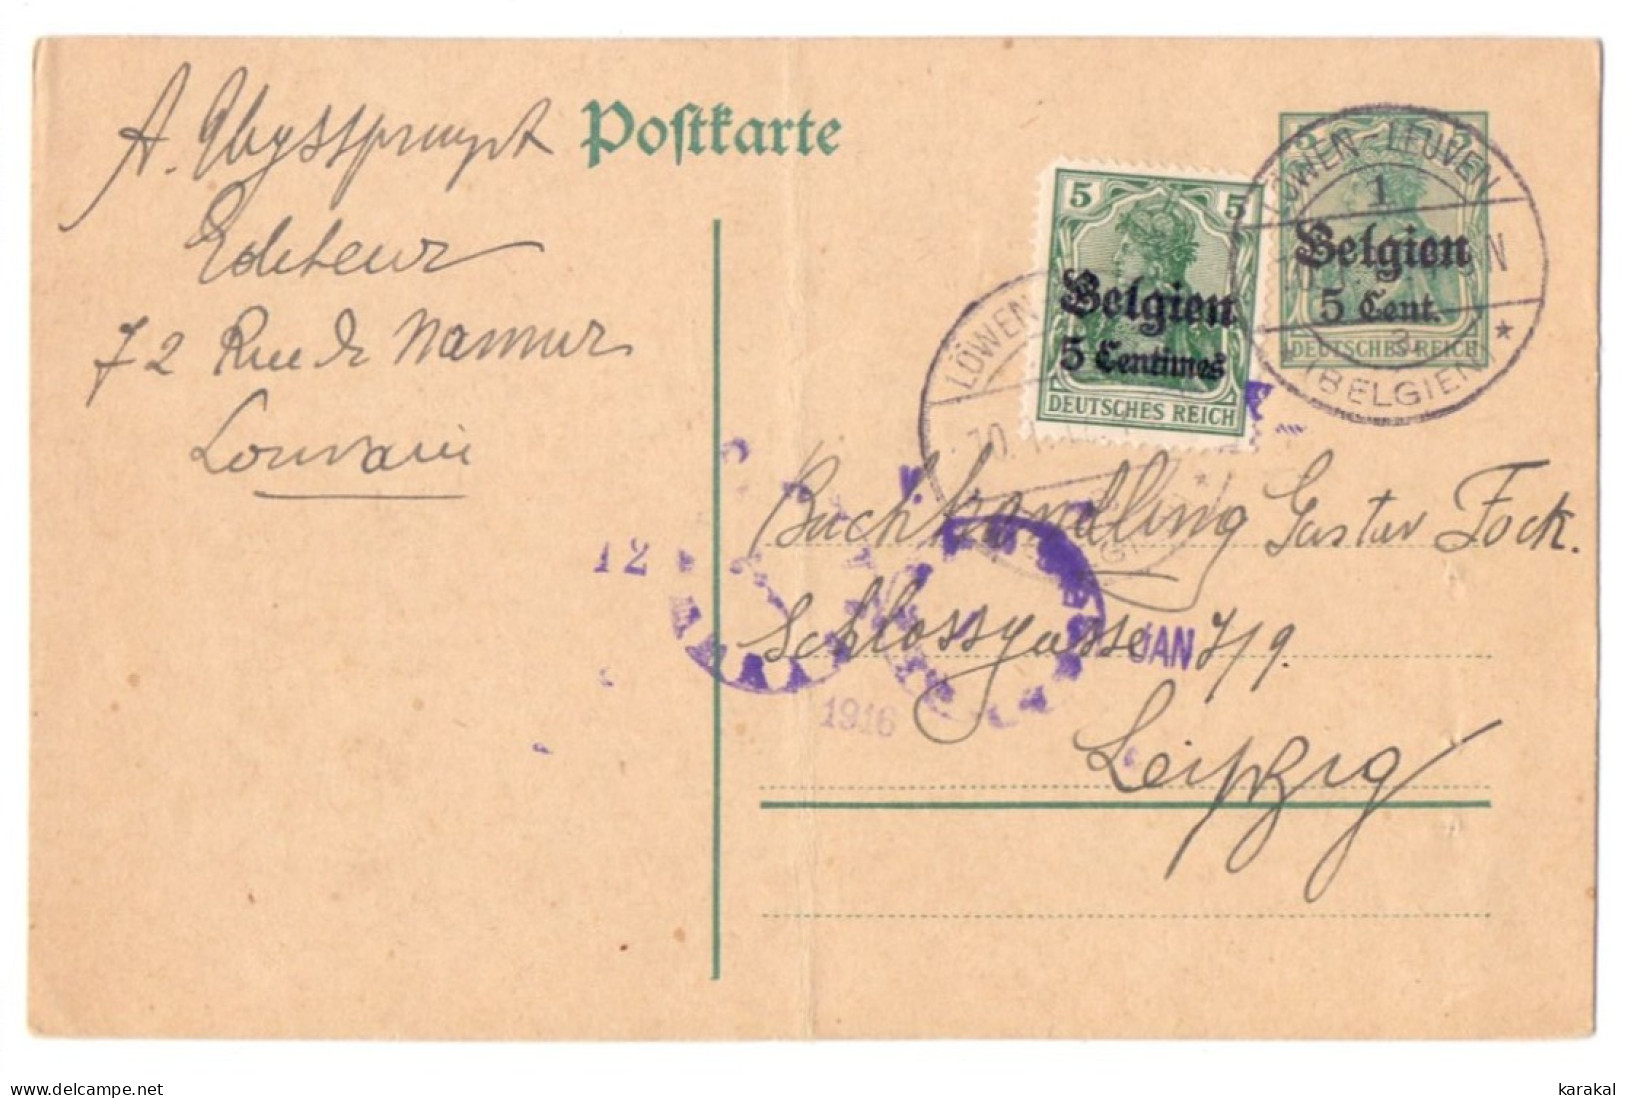 A. Uystpruyst
Editeur
72 Rue de Namur
Louvain
Postkarte
5 5
Belgien
5 Centimes
DEUTSCHES REICH
LÖWEN
LÖWEN - LEUVEN
1
Belgien
5 Cent.
DEUTSCHES REICH
* (BELGIEN) *
Buchhandlung Gustav Fock.
Schlossgasse 7/9.
Leipzig
12 JAN
1916
www.delcampe.net
karakal